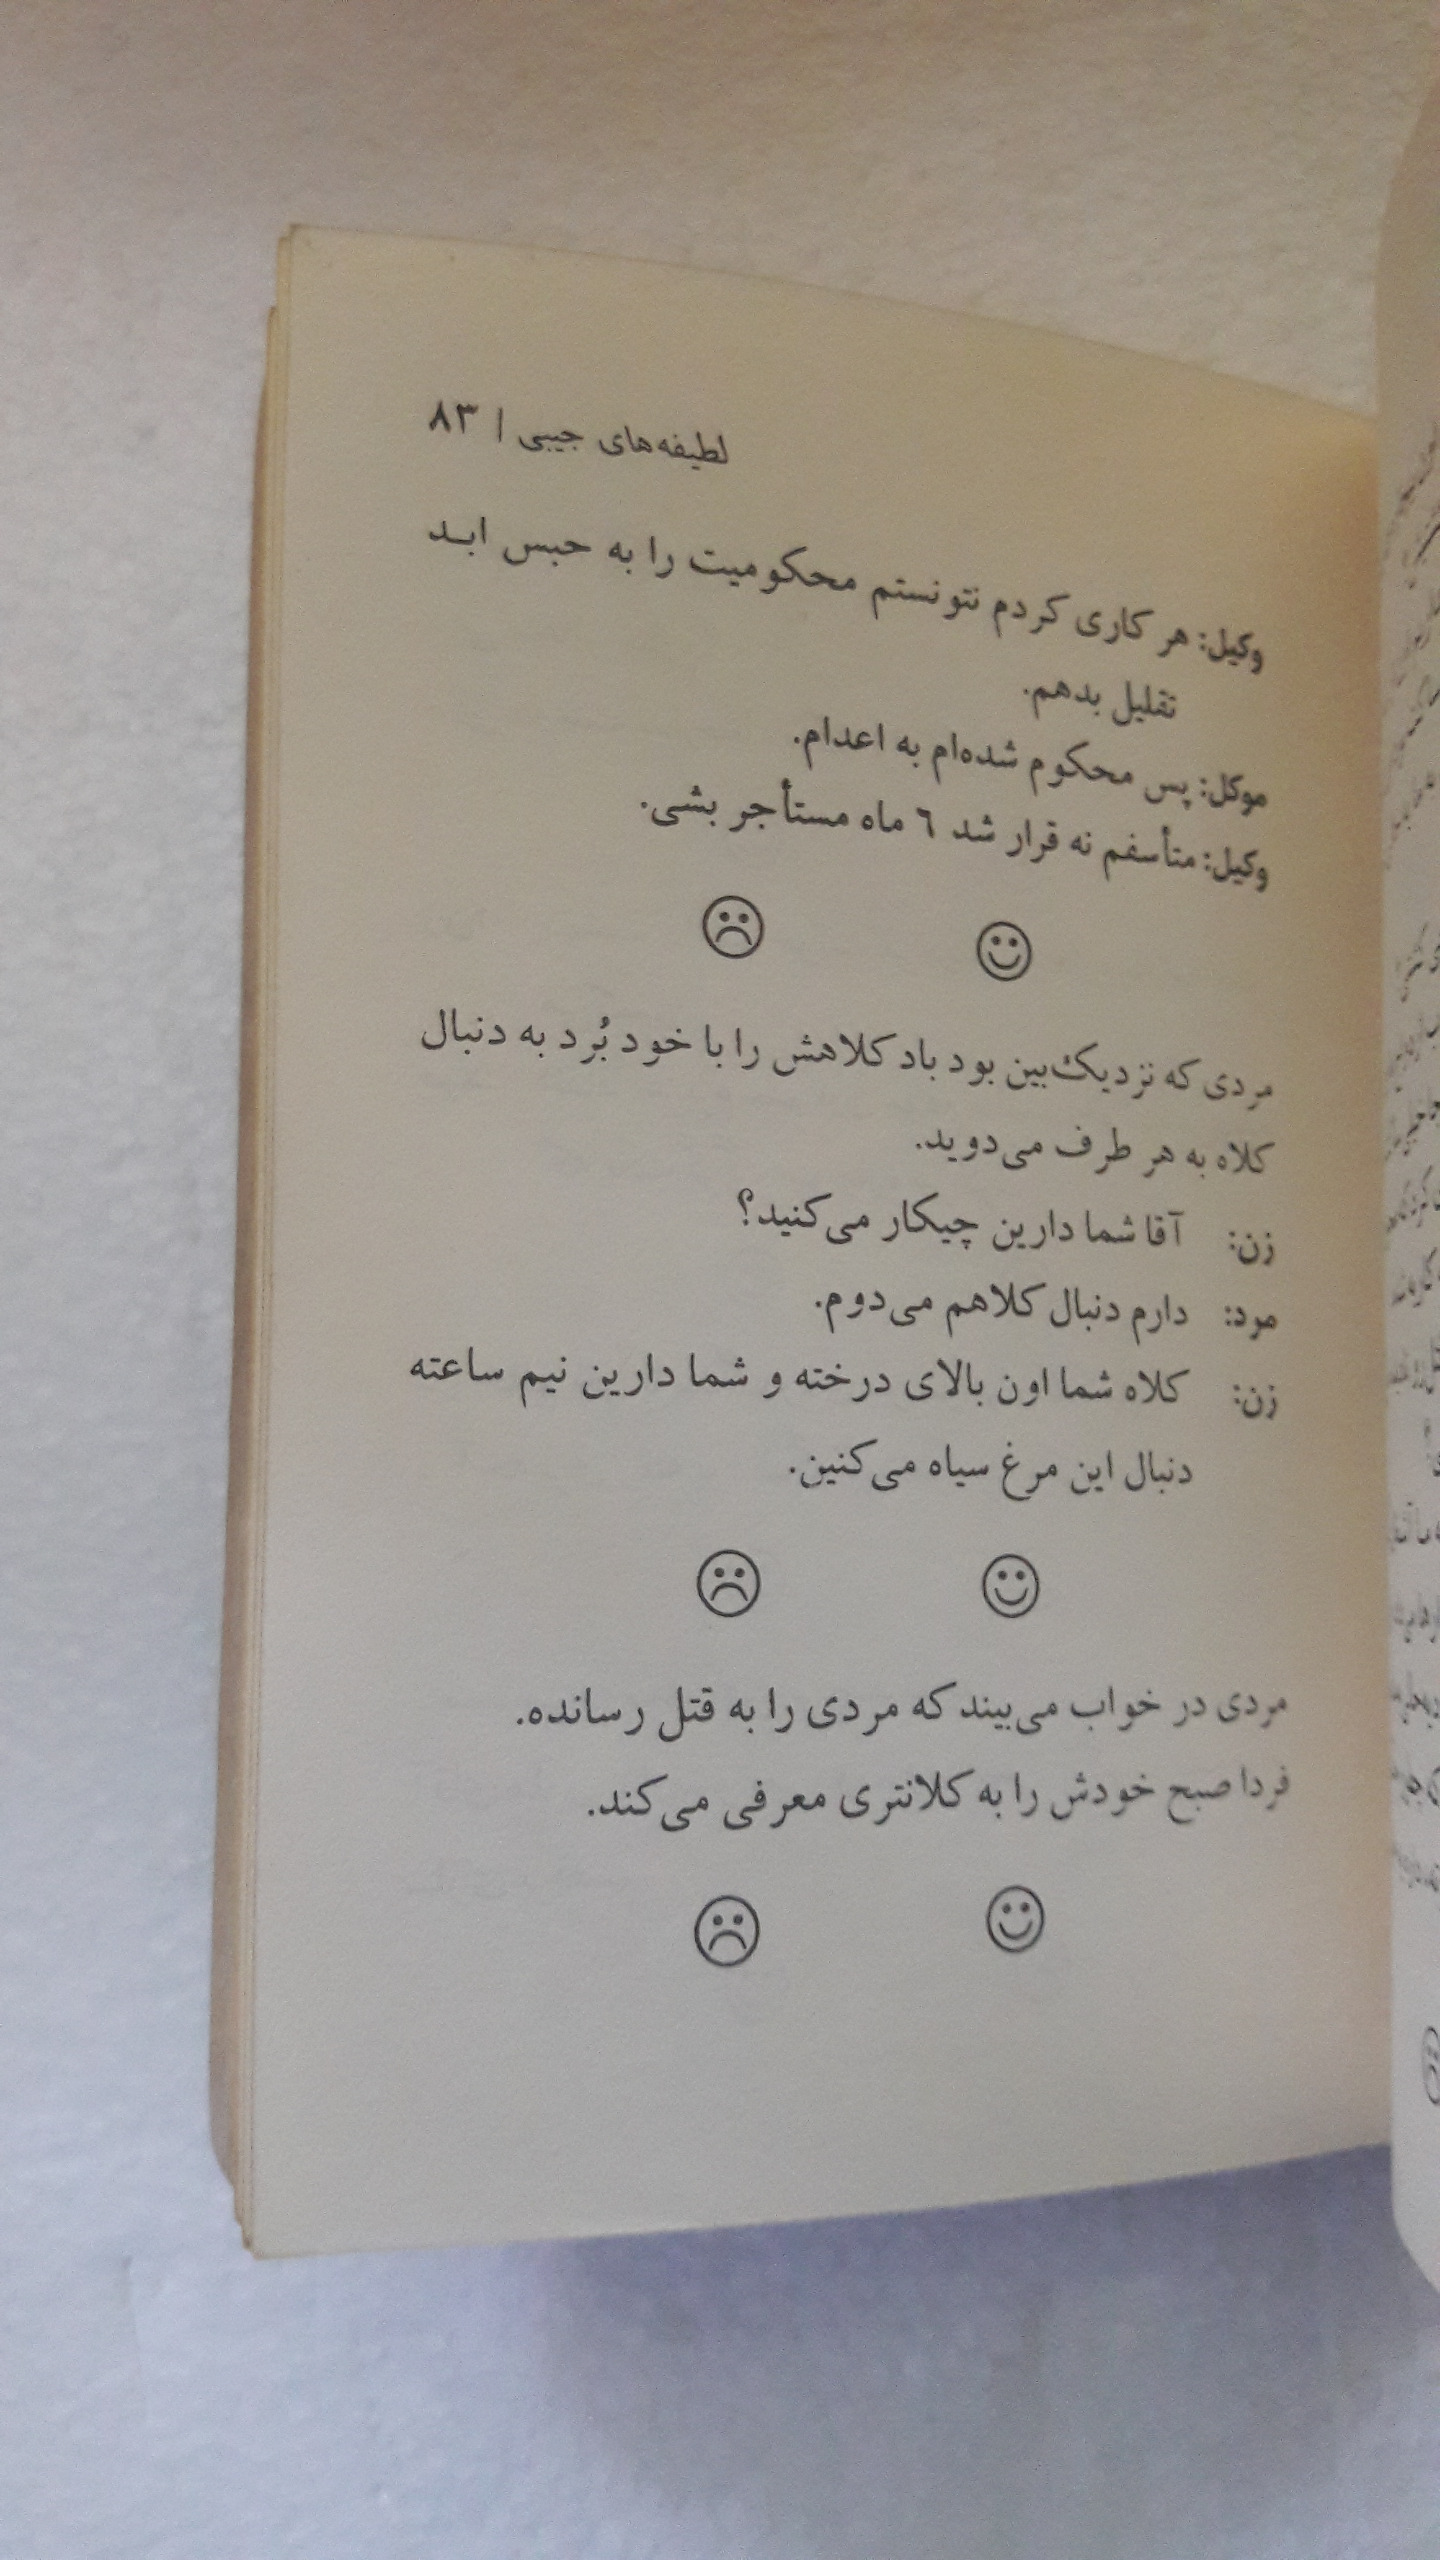 لطیفه‌های جیبی | ۸۳
وکیل: هر کاری کردم نتونستم محکومیت را به حبس ابد
تقلیل بدهم.
موکل: پس محکوم شده‌ام به اعدام.
وکیل: متأسفم نه قرار شد ۶ ماه مستأجر بشی.
مردی که نزدیک‌بین بود باد کلاهش را با خود بُرد به دنبال
کلاه به هر طرف می‌دوید.
زن: آقا شما دارین چیکار می‌کنید؟
مرد: دارم دنبال کلاهم می‌دوم.
زن: کلاه شما اون بالای درخته و شما دارین نیم ساعته
دنبال این مرغ سیاه می‌کنین.
مردی در خواب می‌بیند که مردی را به قتل رسانده.
فردا صبح خودش را به کلانتری معرفی می‌کند.